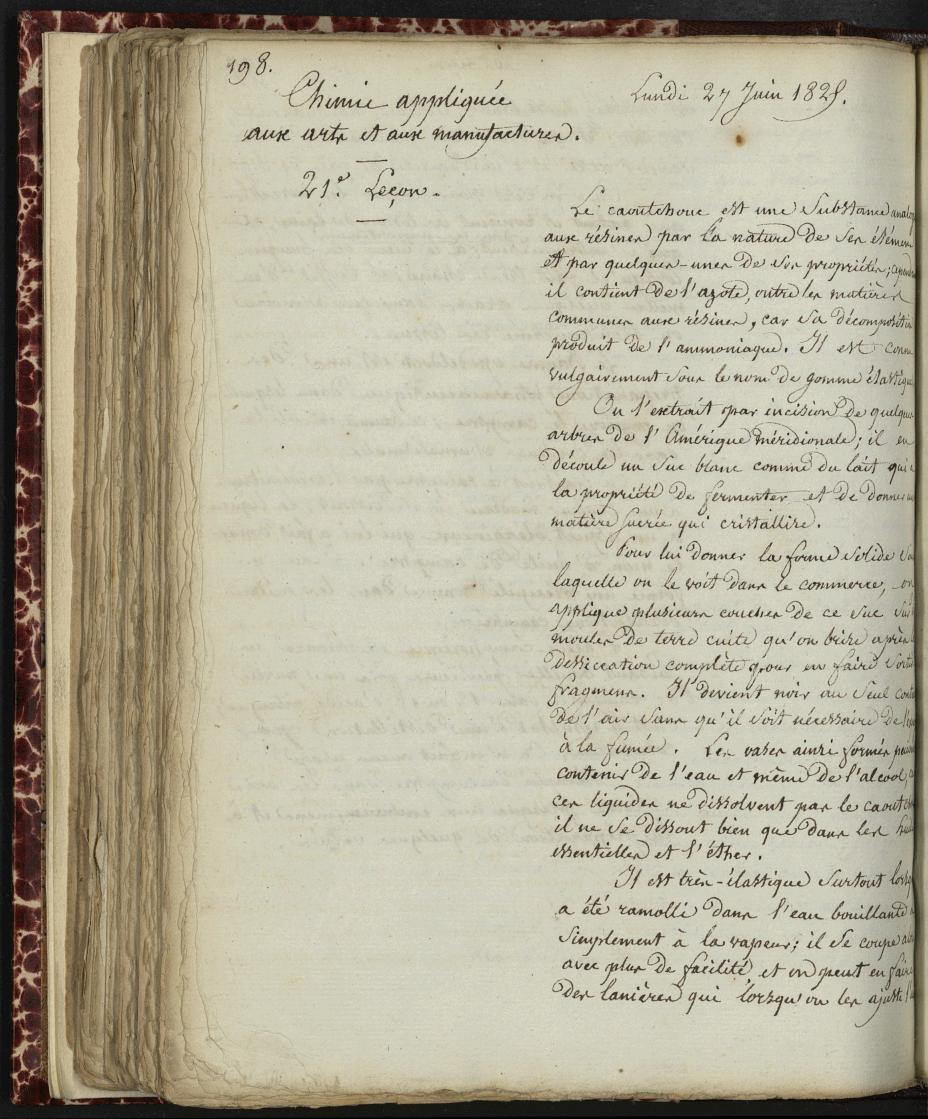 198.
Chimie appliquée
aux arts et aux manufactures.
21e. Leçon.
Lundi 27 Juin 1825.
Le caoutchouc est une substance analog
aux résines par la nature de ses élémen
et par quelques-unes de ses propriétés; cepend
il contient de l'azote, outre les matières
communes aux résines, car sa décomposition
produit de l'ammoniaque. Il est connu
vulgairement sous le nom de gomme élastique
On l'extrait par incision de quelques
arbres de l'Amérique méridionale; il en
découle un suc blanc comme du lait qui a
la propriété de fermenter et de donner une
matière sucrée qui cristallise.
Pour lui donner la forme solide sou
laquelle on le voit dans le commerce, on
applique plusieurs couches de ce suc sur
moules de terre cuite qu'on brise après l
dessiccation complète pour en faire sortir
fragmens. Il devient noir au seul conta
de l'air sans qu'il soit nécessaire de l'
à la fumée. Les vases ainsi formés peuv
contenir de l'eau et même de l'alcool, c
ces liquides ne dissolvent pas le caoutchou
il ne se dissout bien que dans les huil
essentielles et l'éther.
Il est très-élastique surtout lorsq
a été ramolli dans l'eau bouillante
simplement à la vapeur; il se coupe al
avec plus de facilité et on peut en faire
des lanières qui lorsqu'on les ajuste l'